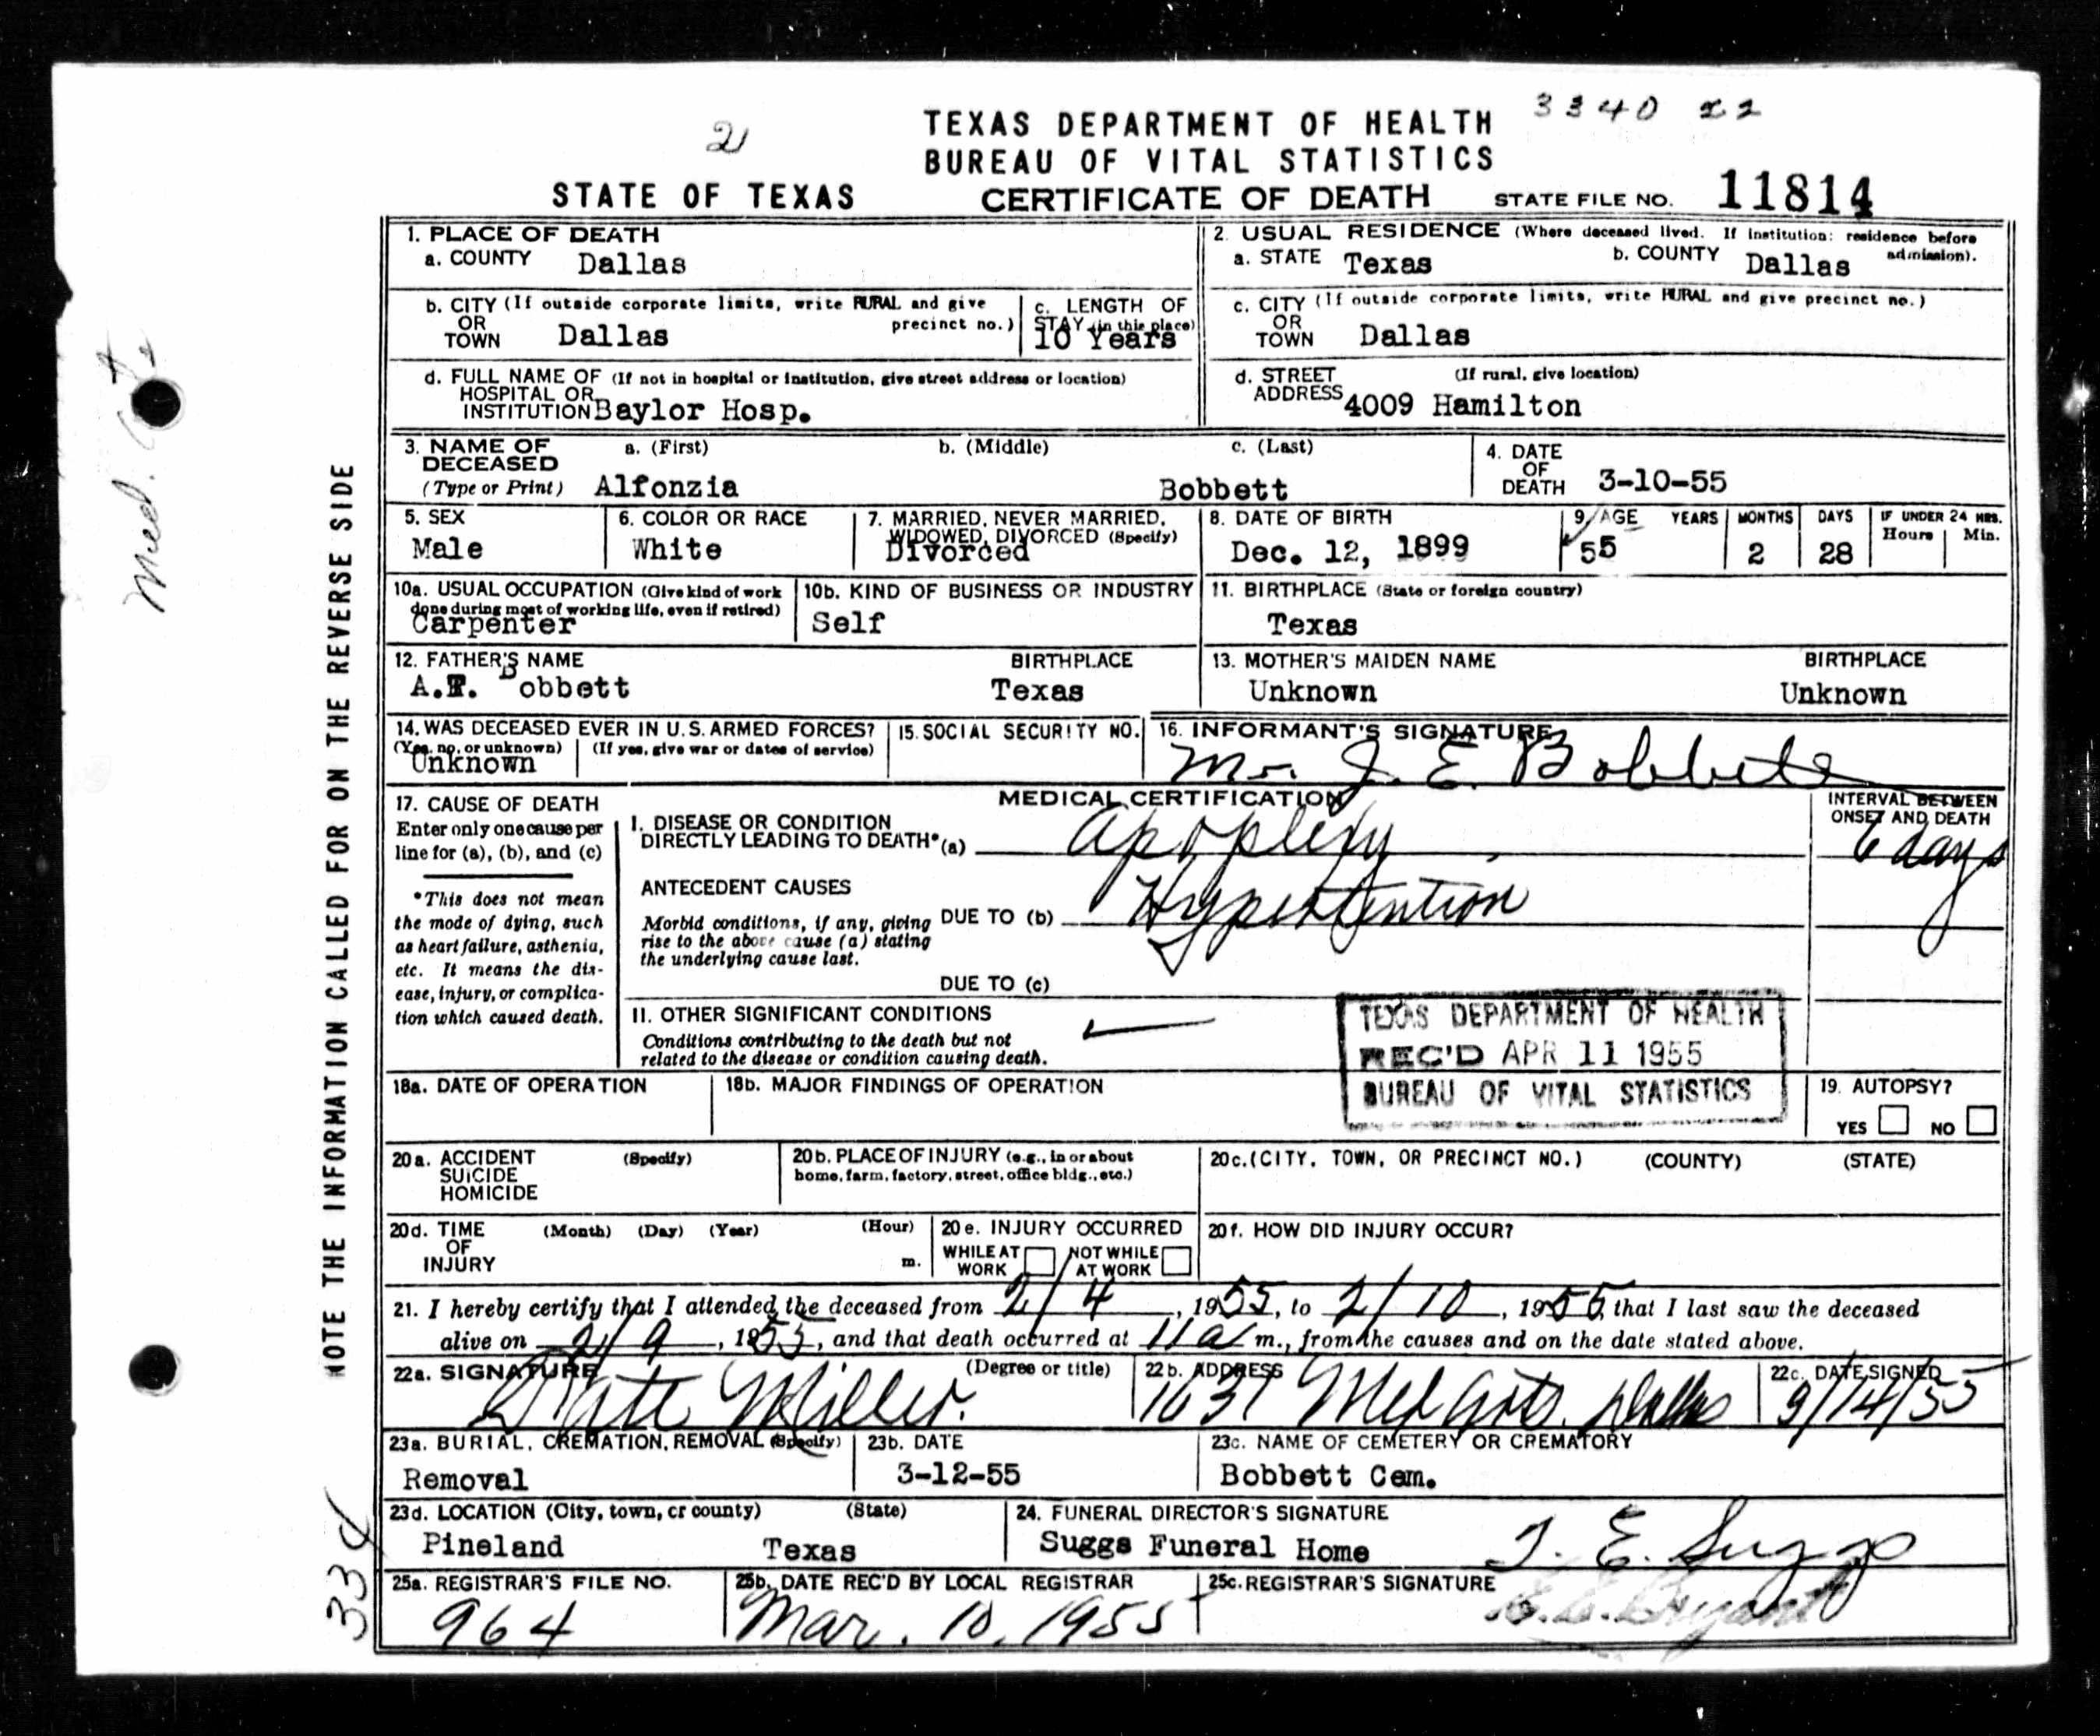 3340 22
2
TEXAS DEPARTMENT OF HEALTH
BUREAU OF VITAL STATISTICS
STATE OF TEXAS CERTIFICATE OF DEATH STATE FILE NO. 11814
Med. Cte
NOTE THE INFORMATION CALLED FOR ON THE REVERSE SIDE
334
1. PLACE OF DEATH
a. COUNTY Dallas
2. USUAL RESIDENCE (Where deceased lived. If institution: residence before admission).
a. STATE Texas b. COUNTY Dallas
b. CITY (If outside corporate limits, write RURAL and give precinct no.)
OR
TOWN Dallas
c. LENGTH OF
STAY (in this place)
10 Years
c. CITY (If outside corporate limits, write RURAL and give precinct no.)
OR
TOWN Dallas
d. FULL NAME OF (If not in hospital or institution, give street address or location)
HOSPITAL OR
INSTITUTION Baylor Hosp.
d. STREET (If rural, give location)
ADDRESS 4009 Hamilton
3. NAME OF DECEASED
(Type or Print)
a. (First) b. (Middle) c. (Last)
Alfonzia Bobbett
4. DATE
OF
DEATH 3-10-55
5. SEX
Male
6. COLOR OR RACE
White
7. MARRIED, NEVER MARRIED,
WIDOWED, DIVORCED (Specify)
Divorced
8. DATE OF BIRTH
Dec. 12, 1899
9. AGE YEARS MONTHS DAYS IF UNDER 24 HRS.
Hours Min.
55 2 28
10a. USUAL OCCUPATION (Give kind of work
done during most of working life, even if retired)
Carpenter
10b. KIND OF BUSINESS OR INDUSTRY
Self
11. BIRTHPLACE (State or foreign country)
Texas
12. FATHER'S NAME BIRTHPLACE
A.T. Bobbett Texas
13. MOTHER'S MAIDEN NAME BIRTHPLACE
Unknown Unknown
14. WAS DECEASED EVER IN U.S. ARMED FORCES?
(Yes, no, or unknown) (If yes, give war or dates of service)
Unknown
15. SOCIAL SECURITY NO.
16. INFORMANT'S SIGNATURE
Mr. J. E. Bobbett
17. CAUSE OF DEATH
Enter only one cause per
line for (a), (b), and (c)
*This does not mean
the mode of dying, such
as heart failure, asthenia,
etc. It means the dis-
ease, injury, or complica-
tion which caused death.
MEDICAL CERTIFICATION
INTERVAL BETWEEN
ONSET AND DEATH
I. DISEASE OR CONDITION
DIRECTLY LEADING TO DEATH* (a) apoplexy 6 days
ANTECEDENT CAUSES
Morbid conditions, if any, giving
rise to the above cause (a) stating
the underlying cause last.
DUE TO (b) Hypertention
DUE TO (c)
II. OTHER SIGNIFICANT CONDITIONS
Conditions contributing to the death but not
related to the disease or condition causing death.
TEXAS DEPARTMENT OF HEALTH
REC'D APR 11 1955
BUREAU OF VITAL STATISTICS
18a. DATE OF OPERATION
18b. MAJOR FINDINGS OF OPERATION
19. AUTOPSY?
YES NO
20a. ACCIDENT (Specify)
SUICIDE
HOMICIDE
20b. PLACE OF INJURY (e.g., in or about
home, farm, factory, street, office bldg., etc.)
20c. (CITY, TOWN, OR PRECINCT NO.) (COUNTY) (STATE)
20d. TIME (Month) (Day) (Year) (Hour)
OF
INJURY m.
20e. INJURY OCCURRED
WHILE AT WORK NOT WHILE AT WORK
20f. HOW DID INJURY OCCUR?
21. I hereby certify that I attended the deceased from 2/4, 1955, to 2/10, 1955, that I last saw the deceased
alive on 2/9, 1955, and that death occurred at 11 a m., from the causes and on the date stated above.
22a. SIGNATURE (Degree or title)
Miller.
22b. ADDRESS
1637 Med Arts. Dallas
22c. DATE SIGNED
3/14/55
23a. BURIAL, CREMATION, REMOVAL (Specify)
Removal
23b. DATE
3-12-55
23c. NAME OF CEMETERY OR CREMATORY
Bobbett Cem.
23d. LOCATION (City, town, or county) (State)
Pineland Texas
24. FUNERAL DIRECTOR'S SIGNATURE
Suggs Funeral Home T. E. Suggs
25a. REGISTRAR'S FILE NO.
964
25b. DATE REC'D BY LOCAL REGISTRAR
Mar. 10, 1955
25c. REGISTRAR'S SIGNATURE
Bryant